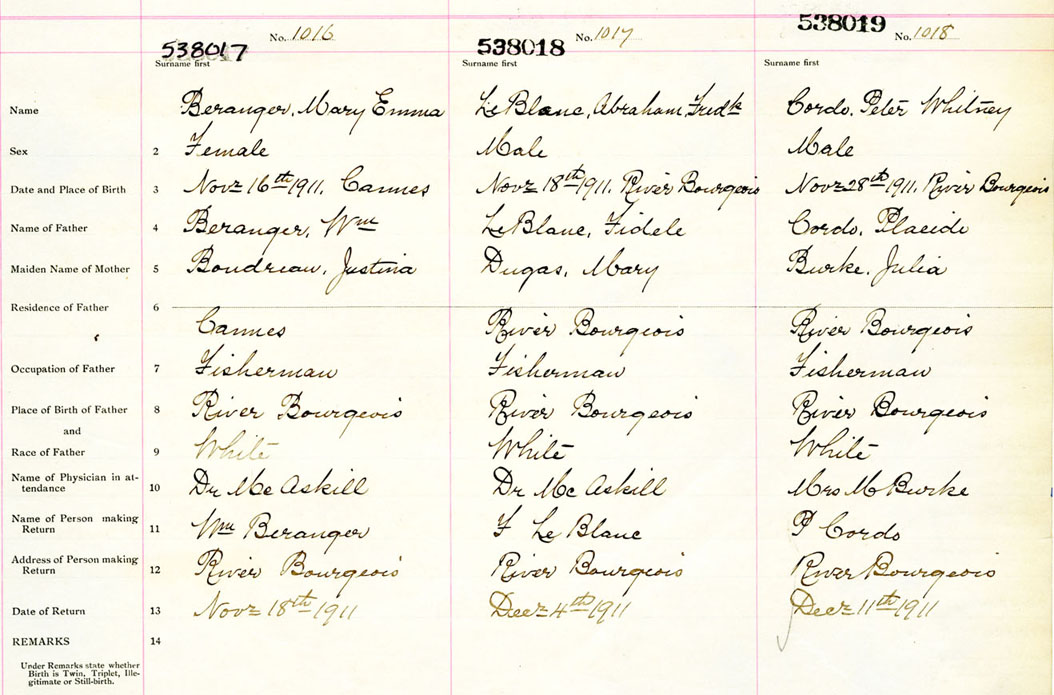 538017 No. 1016 538018 No. 1017 538019 No. 1018
Surname first Surname first Surname first
Name Beranger, Mary Emma LeBlanc, Abraham, Fredk Cordo, Peter Whitney
Sex 2 Female Male Male
Date and Place of Birth 3 Novr 16th 1911, Cannes Novr 18th 1911, River Bourgeois Novr 28th 1911, River Bourgeois
Name of Father 4 Beranger, Wm LeBlanc, Fidele Cordo, Placide
Maiden Name of Mother 5 Boudreau, Justina Dugas, Mary Burke, Julia
Residence of Father 6
Cannes River Bourgeois River Bourgeois
Occupation of Father 7 Fisherman Fisherman Fisherman
Place of Birth of Father 8 River Bourgeois River Bourgeois River Bourgeois
and
Race of Father 9 White White White
Name of Physician in at-
tendance 10 Dr McAskill Dr McAskill Mrs M Burke
Name of Person making
Return 11 Wm Beranger F LeBlanc P Cordo
Address of Person making
Return 12 River Bourgeois River Bourgeois River Bourgeois
Date of Return 13 Novr 18th 1911 Decr 4th 1911 Decr 11th 1911
REMARKS 14
Under Remarks state whether
Birth is Twin, Triplet, Ille-
gitimate or Still-birth.